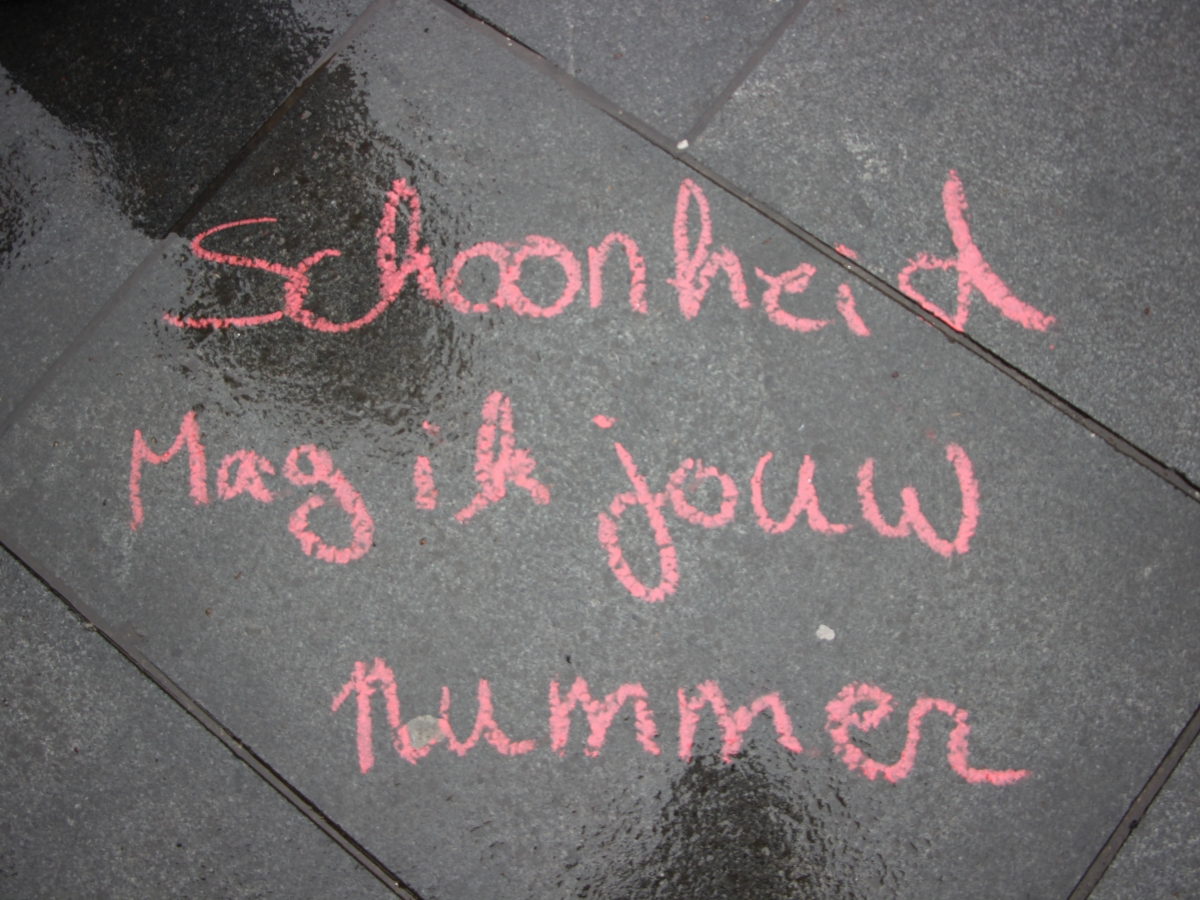 Schoonheid
Mag ik jouw
nummer